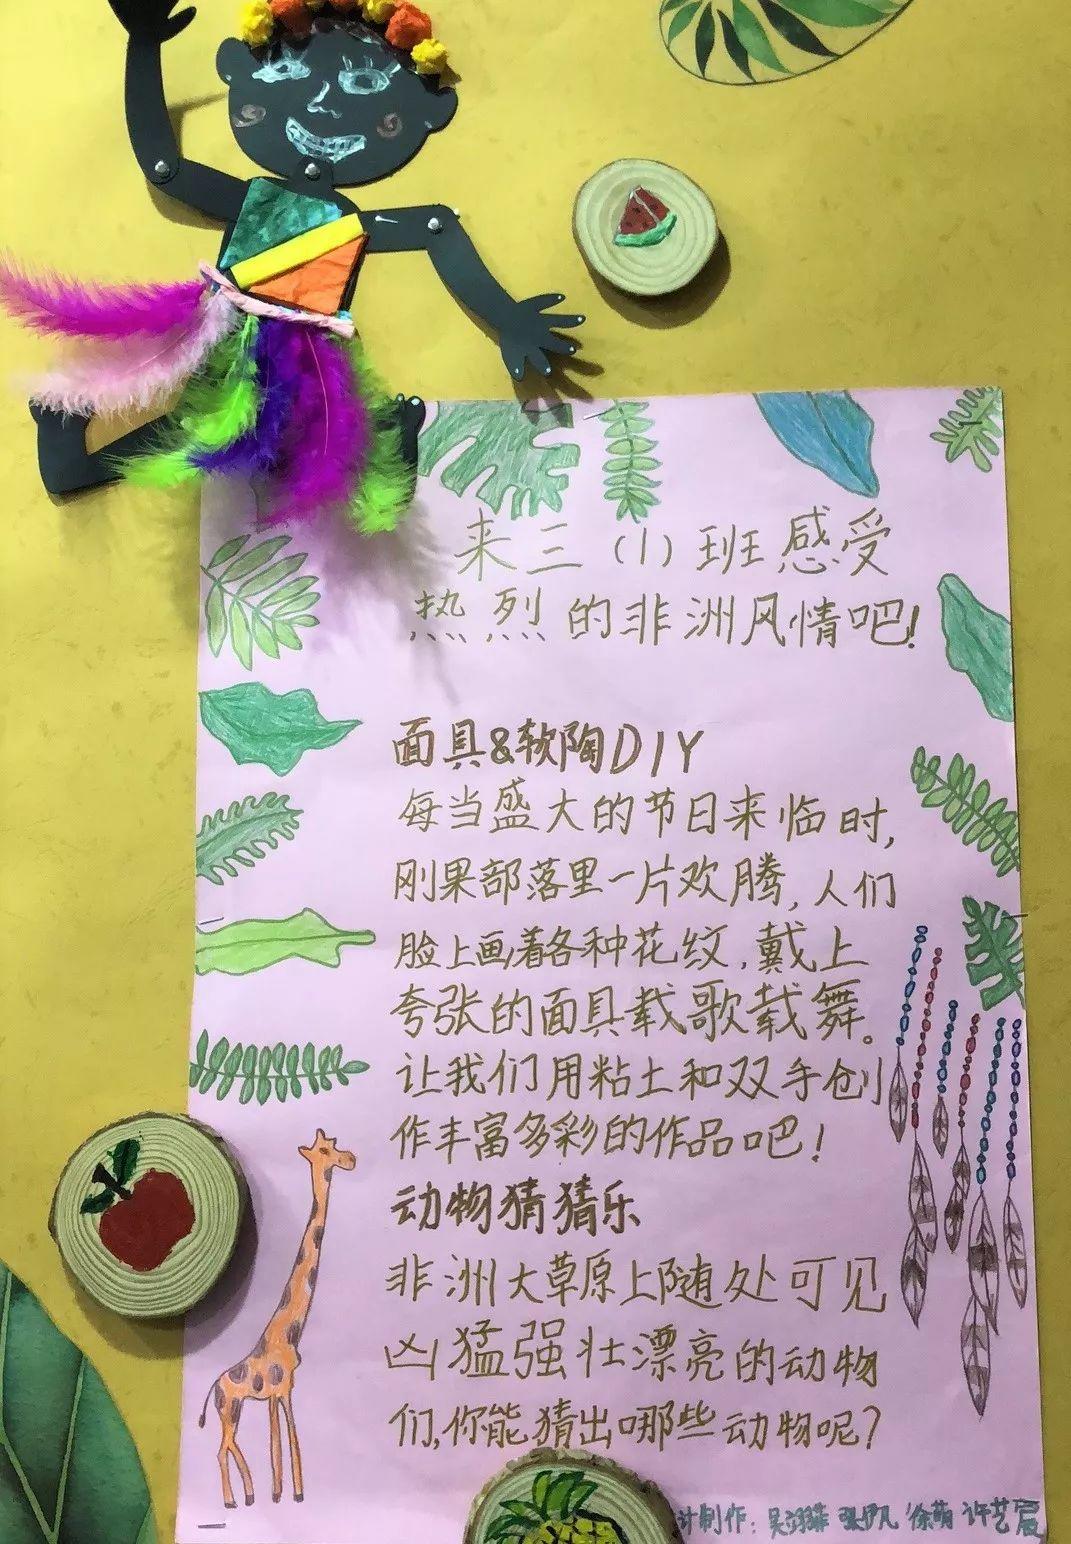 来三（1）班感受
热烈的非洲风情吧！
面具&软陶DIY
每当盛大的节日来临时，
刚果部落里一片欢腾，人们
脸上画着各种花纹，戴上
夸张的面具载歌载舞。
让我们用粘土和双手创
作丰富多彩的作品吧！
动物猜猜乐
非洲大草原上随处可见
凶猛强壮漂亮的动物
们，你能猜出哪些动物呢？
计制作：吴 徐萌 许艺宸